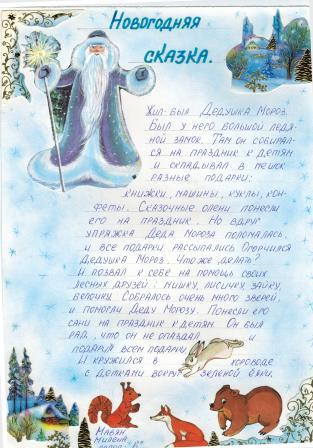 Новогодняя
сказка.
Жил-был Дедушка Мороз.
Был у него большой ледя-
ной замок. Там он собирал-
ся на праздник к детям
и складывал в мешок
разные подарки:
книжки, машины, куклы, кон-
феты. Сказочные олени понесли
его на праздник. Но вдруг
упряжка Деда Мороза поломалась,
и все подарки рассыпались. Огорчился
Дедушка Мороз. Что же делать?
И позвал к себе на помощь своих
лесных друзей: мишку, лисичку, зайку,
белочку. Собралось очень много зверей,
и помогли Деду Морозу. Понесли его
сани на праздник к детям. Он был
рад, что он не опоздал и
подарил всем подарки.
И кружился в хороводе
с детками вокруг зеленой ёлки.
Милена